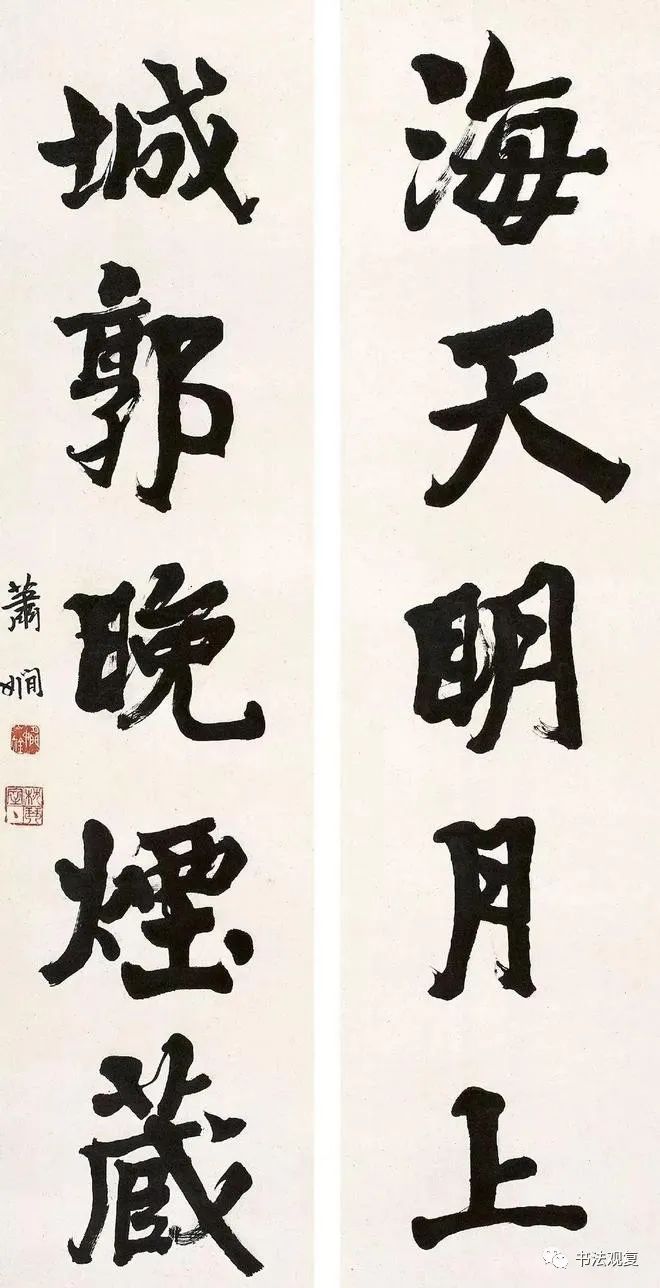 海天明月上
城郭晚煙藏
蕭嫻
书法观复